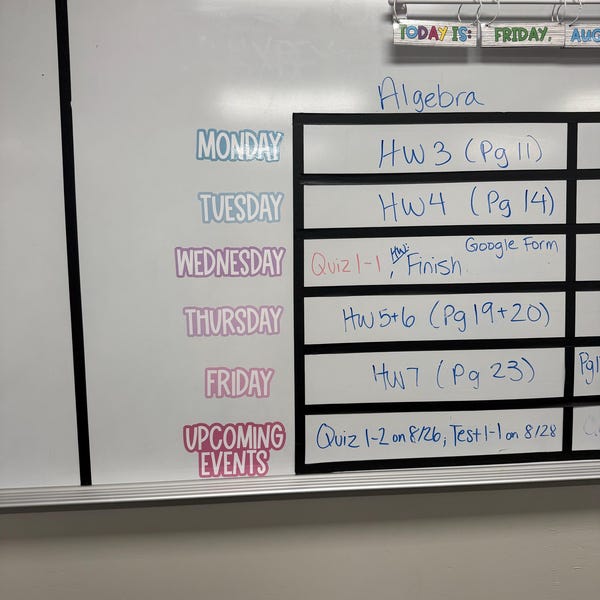 TODAY IS: FRIDAY, AUG
Algebra
MONDAY HW 3 (Pg 11)
TUESDAY HW4 (Pg 14)
WEDNESDAY Quiz 1-1 HW: Finish Google Form
THURSDAY HW 5+6 (Pg 19+20)
FRIDAY HW7 (Pg 23)
UPCOMING Quiz 1-2 on 8/26, Test 1-1 on 8/28
EVENTS